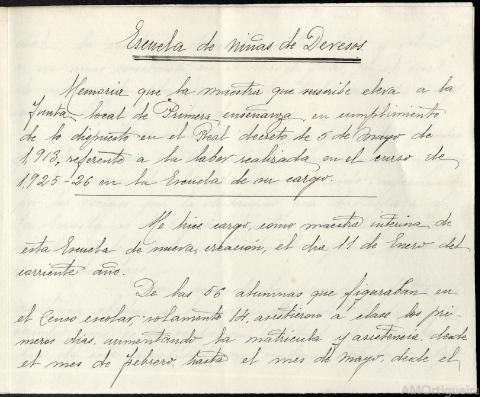 Escuela de niñas de Devesos
Memoria que la maestra que suscribe eleva a la
Junta local de Primera enseñanza, en cumplimiento
de lo dispuesto en el Real decreto de 5 de Mayo de
1,913, referente a la labor realizada, en el curso de
1,925-26 en la Escuela de su cargo.
Me hice cargo, como maestra interina de
esta Escuela de nueva creación, el dia 11 de Enero del
corriente año.
De las 56 alumnas que figuraban en
el Censo escolar, solamente 14, asistieron a clase los pri-
meros dias, aumentando la matricula y asistencia, desde
el mes de febrero, hasta el mes de Mayo, desde el
AMOrtigueira